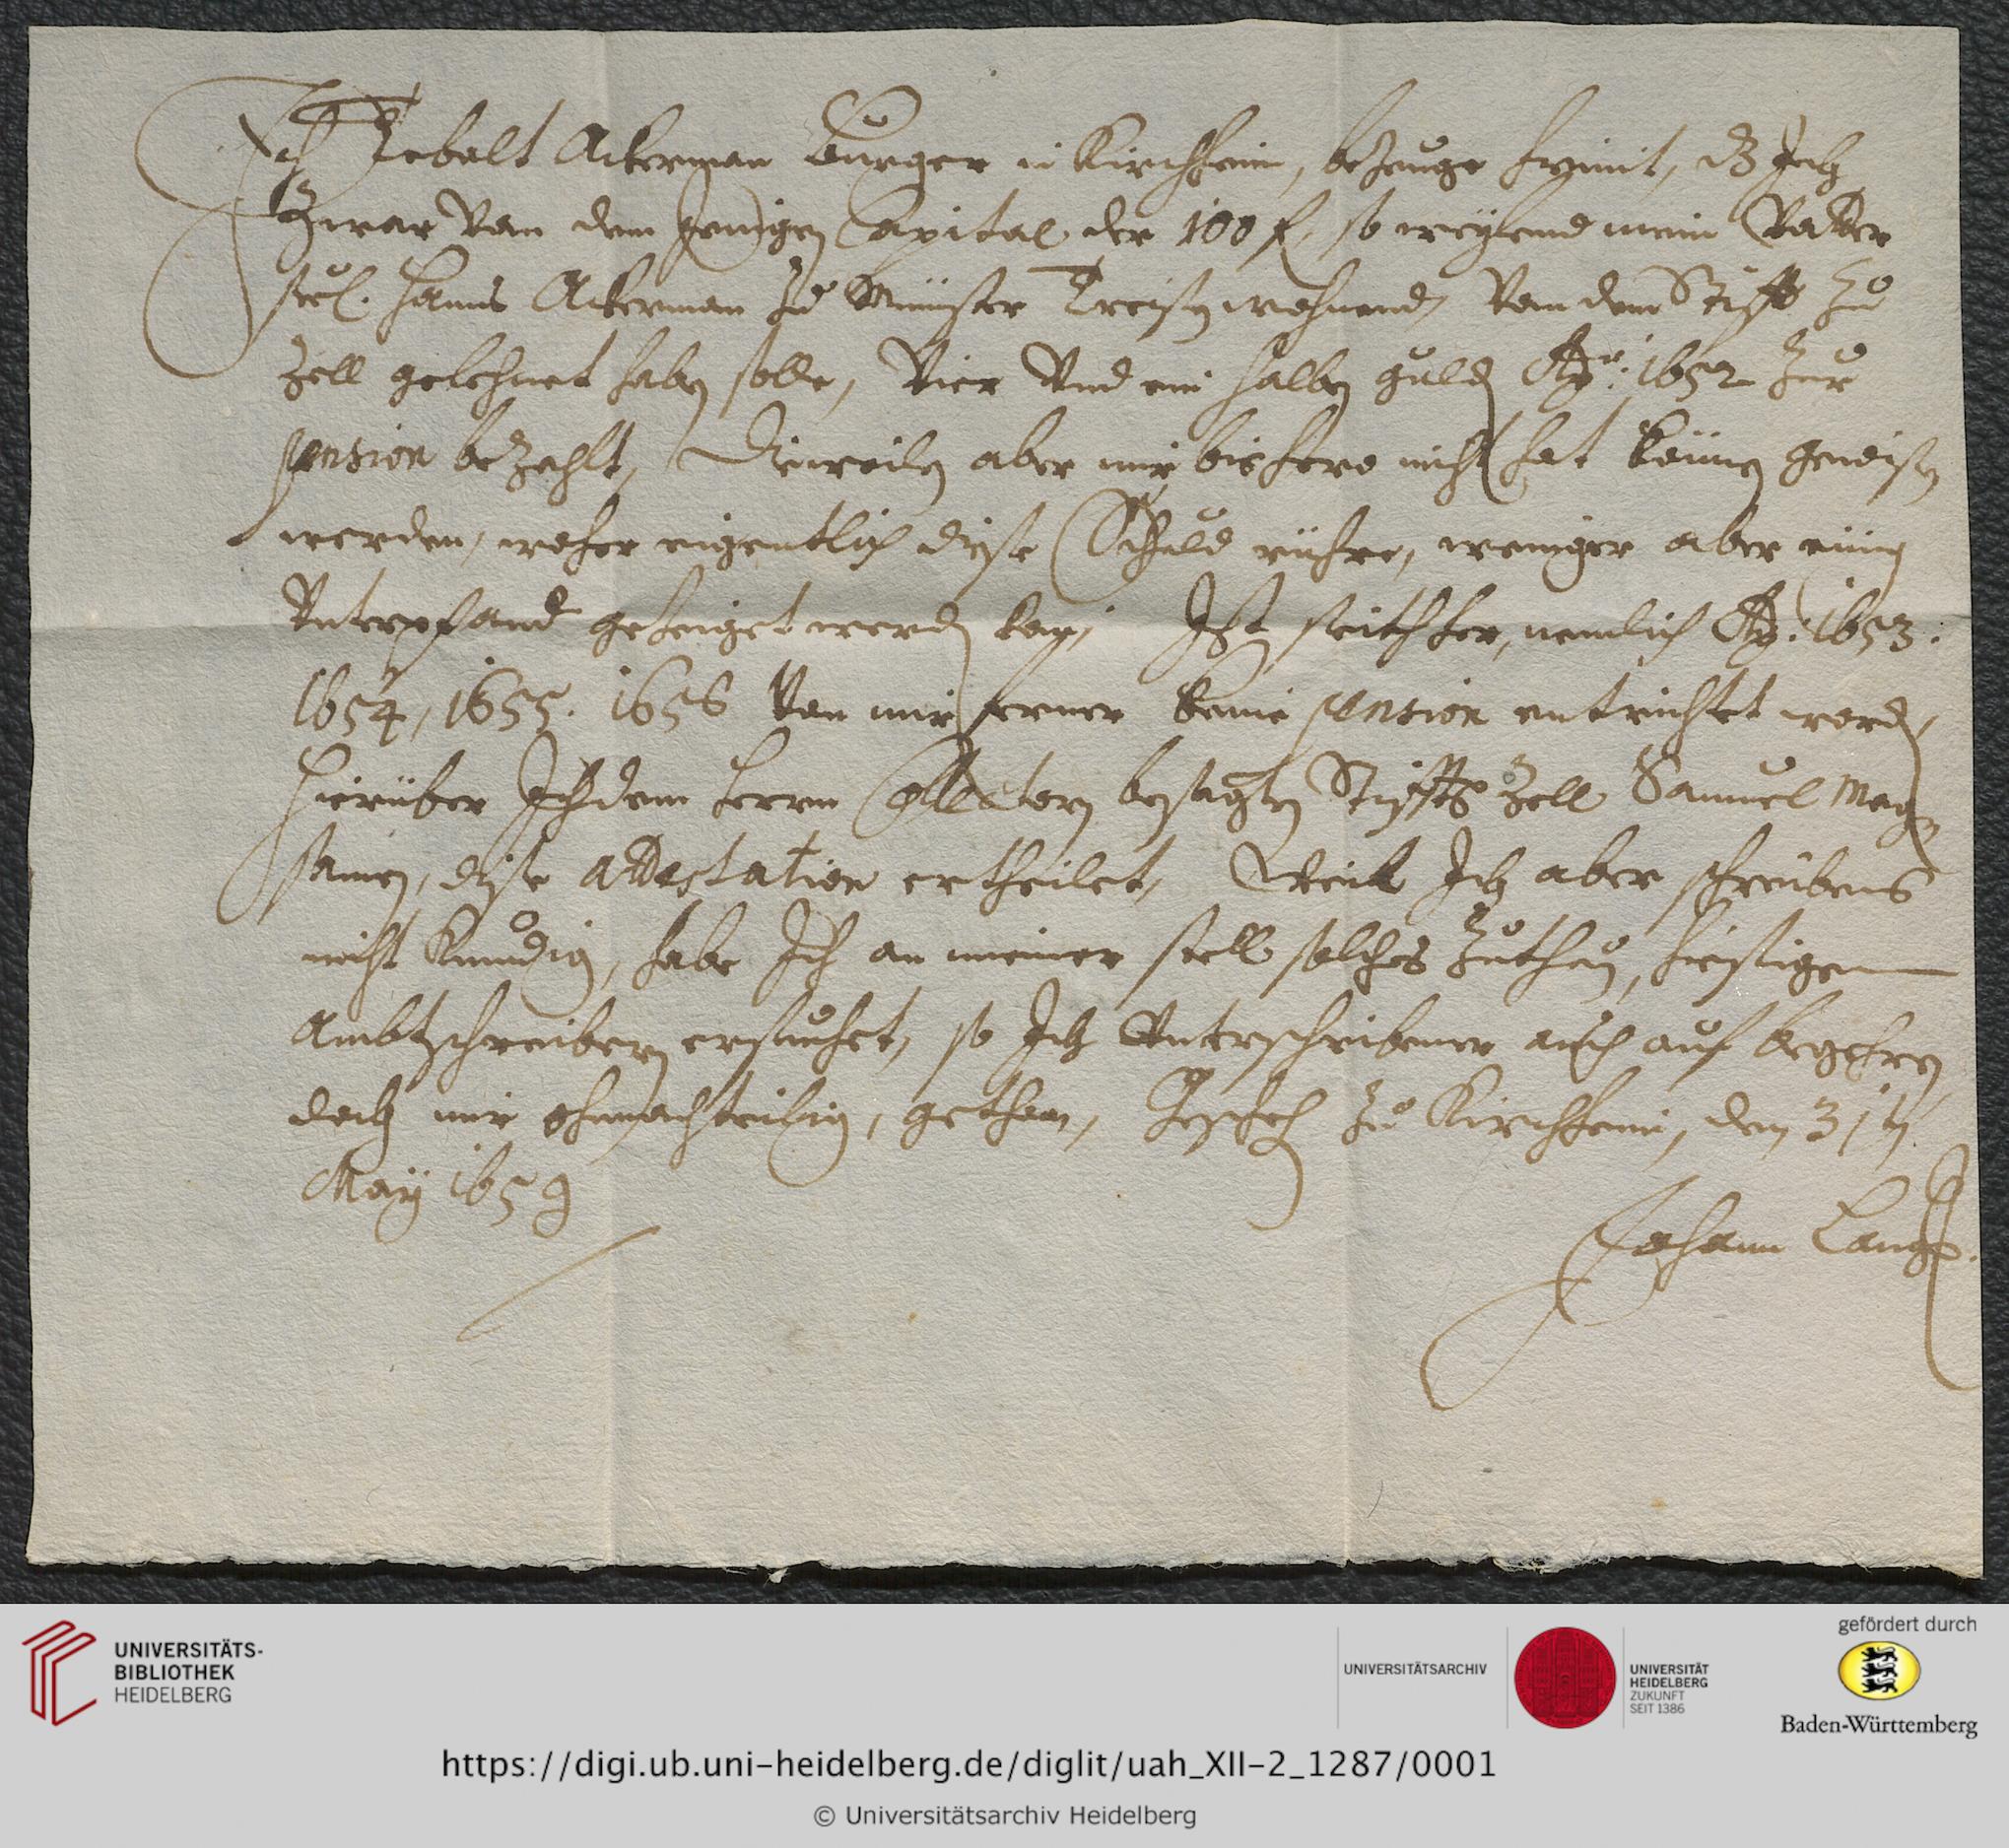 Ich Debalt Ackerman Burger in Kirchheim, bezeuge hiemit, dz Ich
Zwar von dem Jenigen Capital der 100 f. so weylend mein Vatter
seel. Hanns Ackerman zu Münster Dreisen wohnend, von dem Stifft zu
Zell gelehnet haben solle, Vier Vnd ein halben guld Ao: 1652 zur
pension bezahlt, Dieweiln aber mir bishero nicht hat können gewisen
werden, woher eigentlich diese Schuld rühre, weniger aber einig
Vnterpfand gezeiget werden kan, Ist seithher, nemlich Ao: 1653.
1654, 1655. 1656 von mir ferner keine pension entrichtet word,
Hierüber Ich dem Herrn Collectorn besagten Stiffts Zell Samuel Mag
samen, diese attestation ertheilet, Weil Ich aber schreibens
nicht Kundig, habe Ich an meiner stell solches zuthun, hiesigen
Ambtschreibern ersuchet, so Ich Vnterschribener auch auf begehren
doch mir ohnnachteilig, gethan, Geschehen zu Kirchheim, den 31t
May 1659
Johann Lang
UNIVERSITÄTS-
BIBLIOTHEK
HEIDELBERG
UNIVERSITÄTSARCHIV
UNIVERSITÄT
HEIDELBERG
ZUKUNFT
SEIT 1386
gefördert durch
Baden-Württemberg
https://digi.ub.uni-heidelberg.de/diglit/uah_XII-2_1287/0001
© Universitätsarchiv Heidelberg